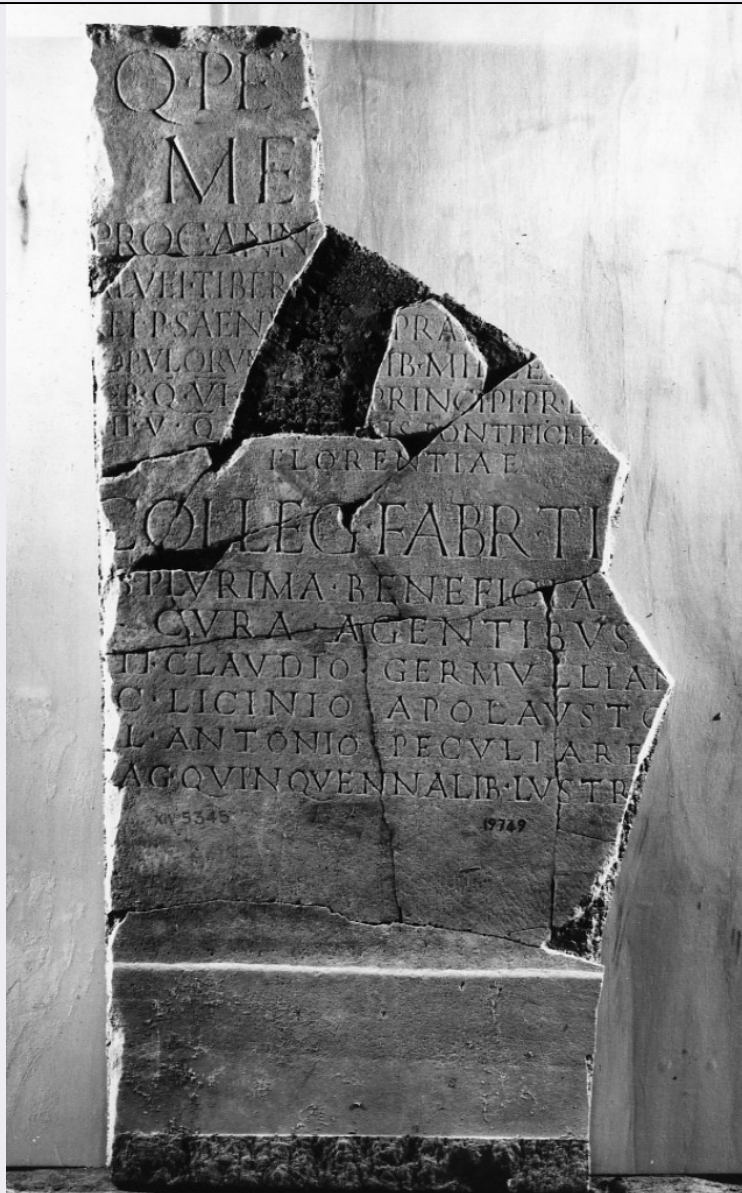 Q·PE
ME
PROC·ANN
ALVEI·TIBER
REI·P·SAEN PRA
OPVLORVM IB·MIL
ER·Q·VI PRINCIPI·PR
II·V·Q IS·PONTIFICI·F
FLORENTIAE
COLLEG·FABR·TI
PLVRIMA·BENEFICIA
CVRA·AGENTIBVS
TI·CLAVDIO·GERMVLLIAN
C·LICINIO APOLAVSTO
L·ANTONIO PECVLIARE
AG·QVINQVENNALIB·LVSTR
XIV 5345 19749